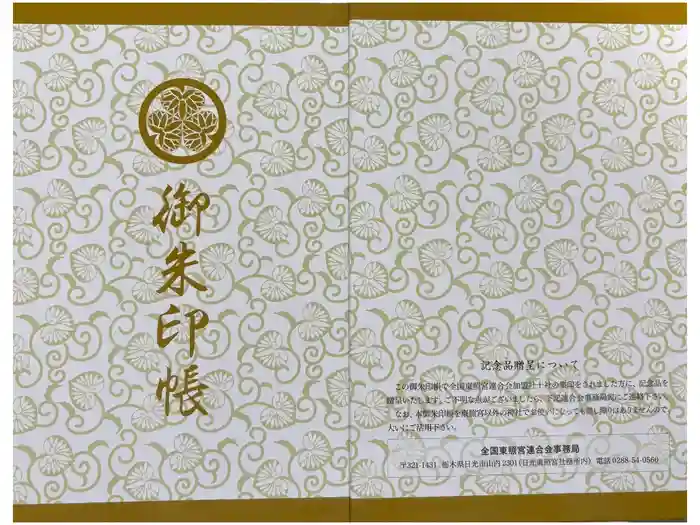 御朱印帳
記念品贈呈について
この御朱印帳で全国東照宮連合会加盟社十社の朱印をされました方に、記念品を
贈呈いたします。ご不明な点がございましたら、下記連合会事務局宛にご連絡下さい。
なお、本御朱印帳を東照宮以外の神社でお使いになっても差し障りはありませんので、
大いにご活用下さい。
全国東照宮連合会事務局
〒321-1431 栃木県日光市山内2301(日光東照宮社務所内) 電話0288-54-0560